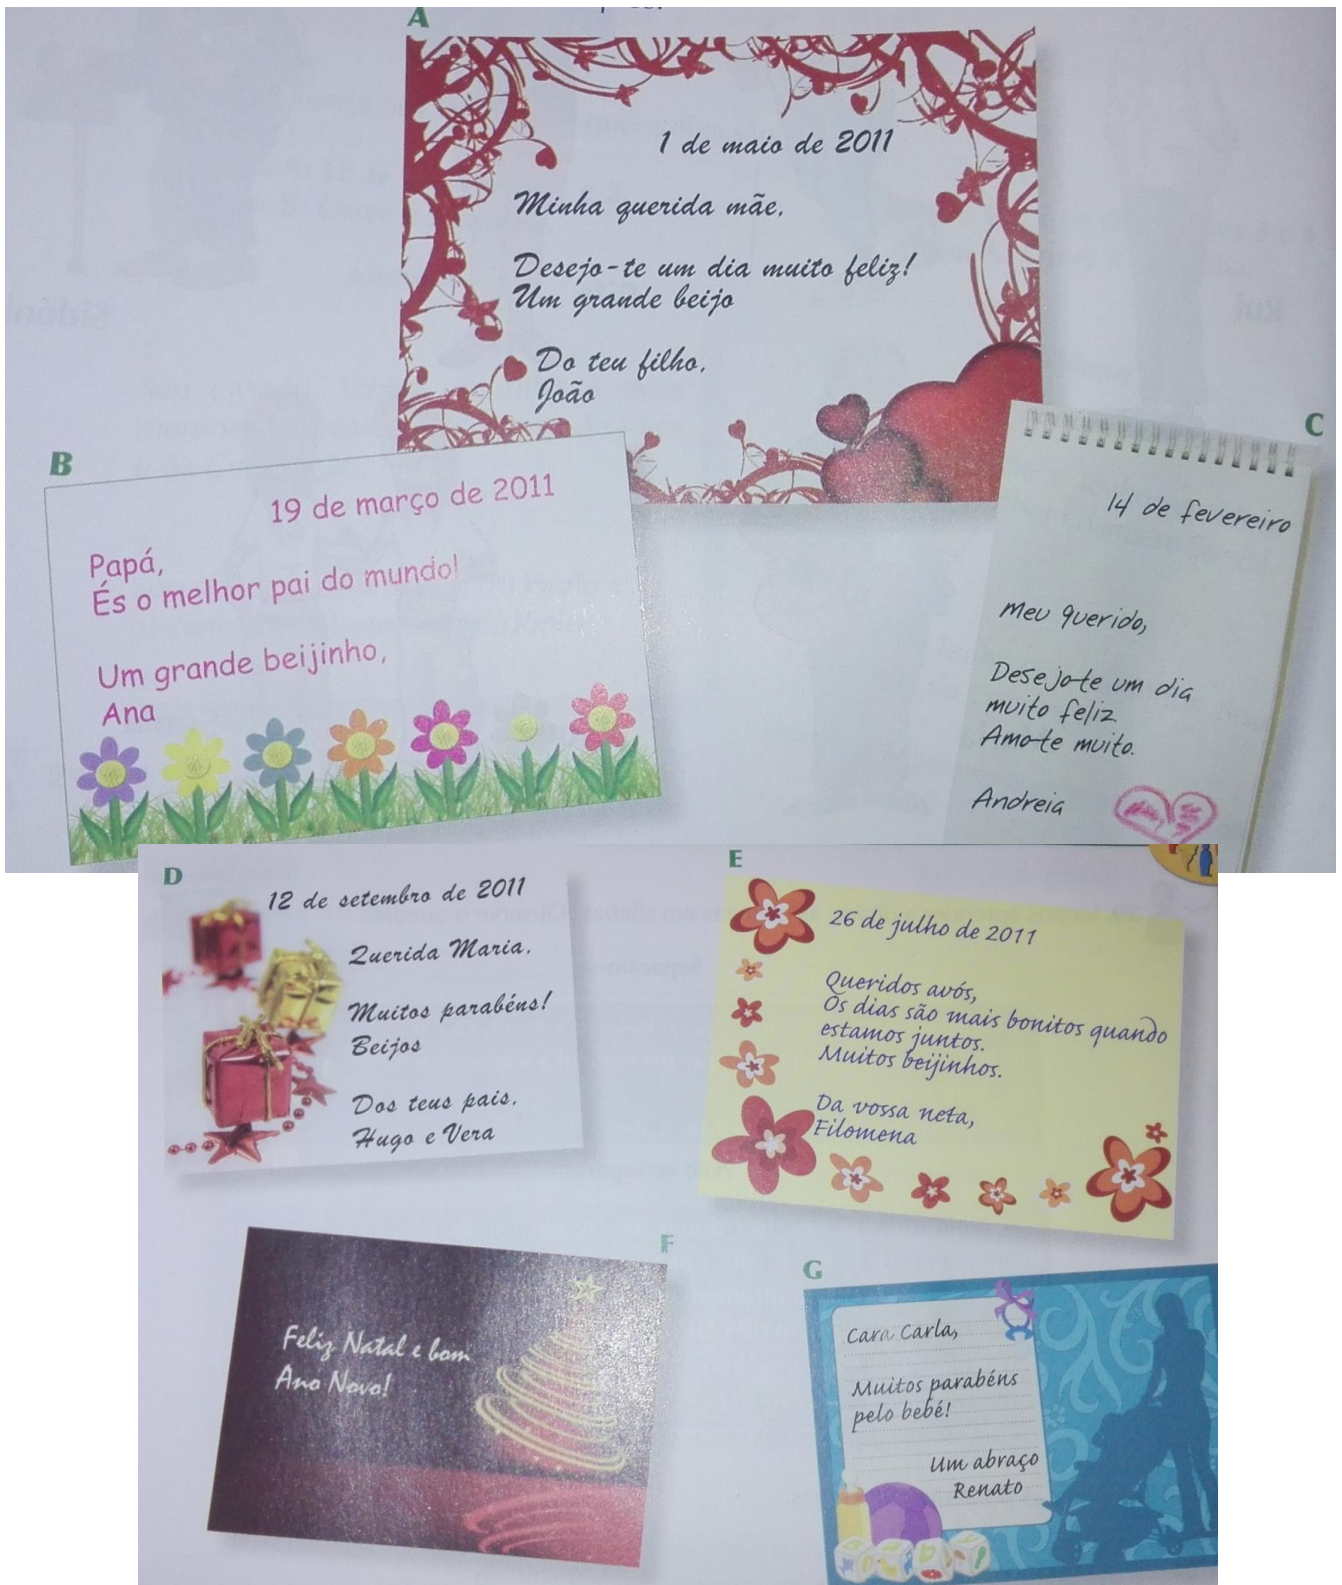 A
1 de maio de 2011
Minha querida mãe,
Desejo-te um dia muito feliz!
Um grande beijo
Do teu filho,
João
B
19 de março de 2011
Papá,
És o melhor pai do mundo!
Um grande beijinho,
Ana
C
14 de fevereiro
Meu querido,
Desejo-te um dia
muito feliz.
Amo-te muito.
Andreia
D
12 de setembro de 2011
Querida Maria,
Muitos parabéns!
Beijos
Dos teus pais,
Hugo e Vera
E
26 de julho de 2011
Queridos avós,
Os dias são mais bonitos quando
estamos juntos.
Muitos beijinhos.
Da vossa neta,
Filomena
F
Feliz Natal e bom
Ano Novo!
G
Cara Carla,
Muitos parabéns
pelo bebé!
Um abraço
Renato